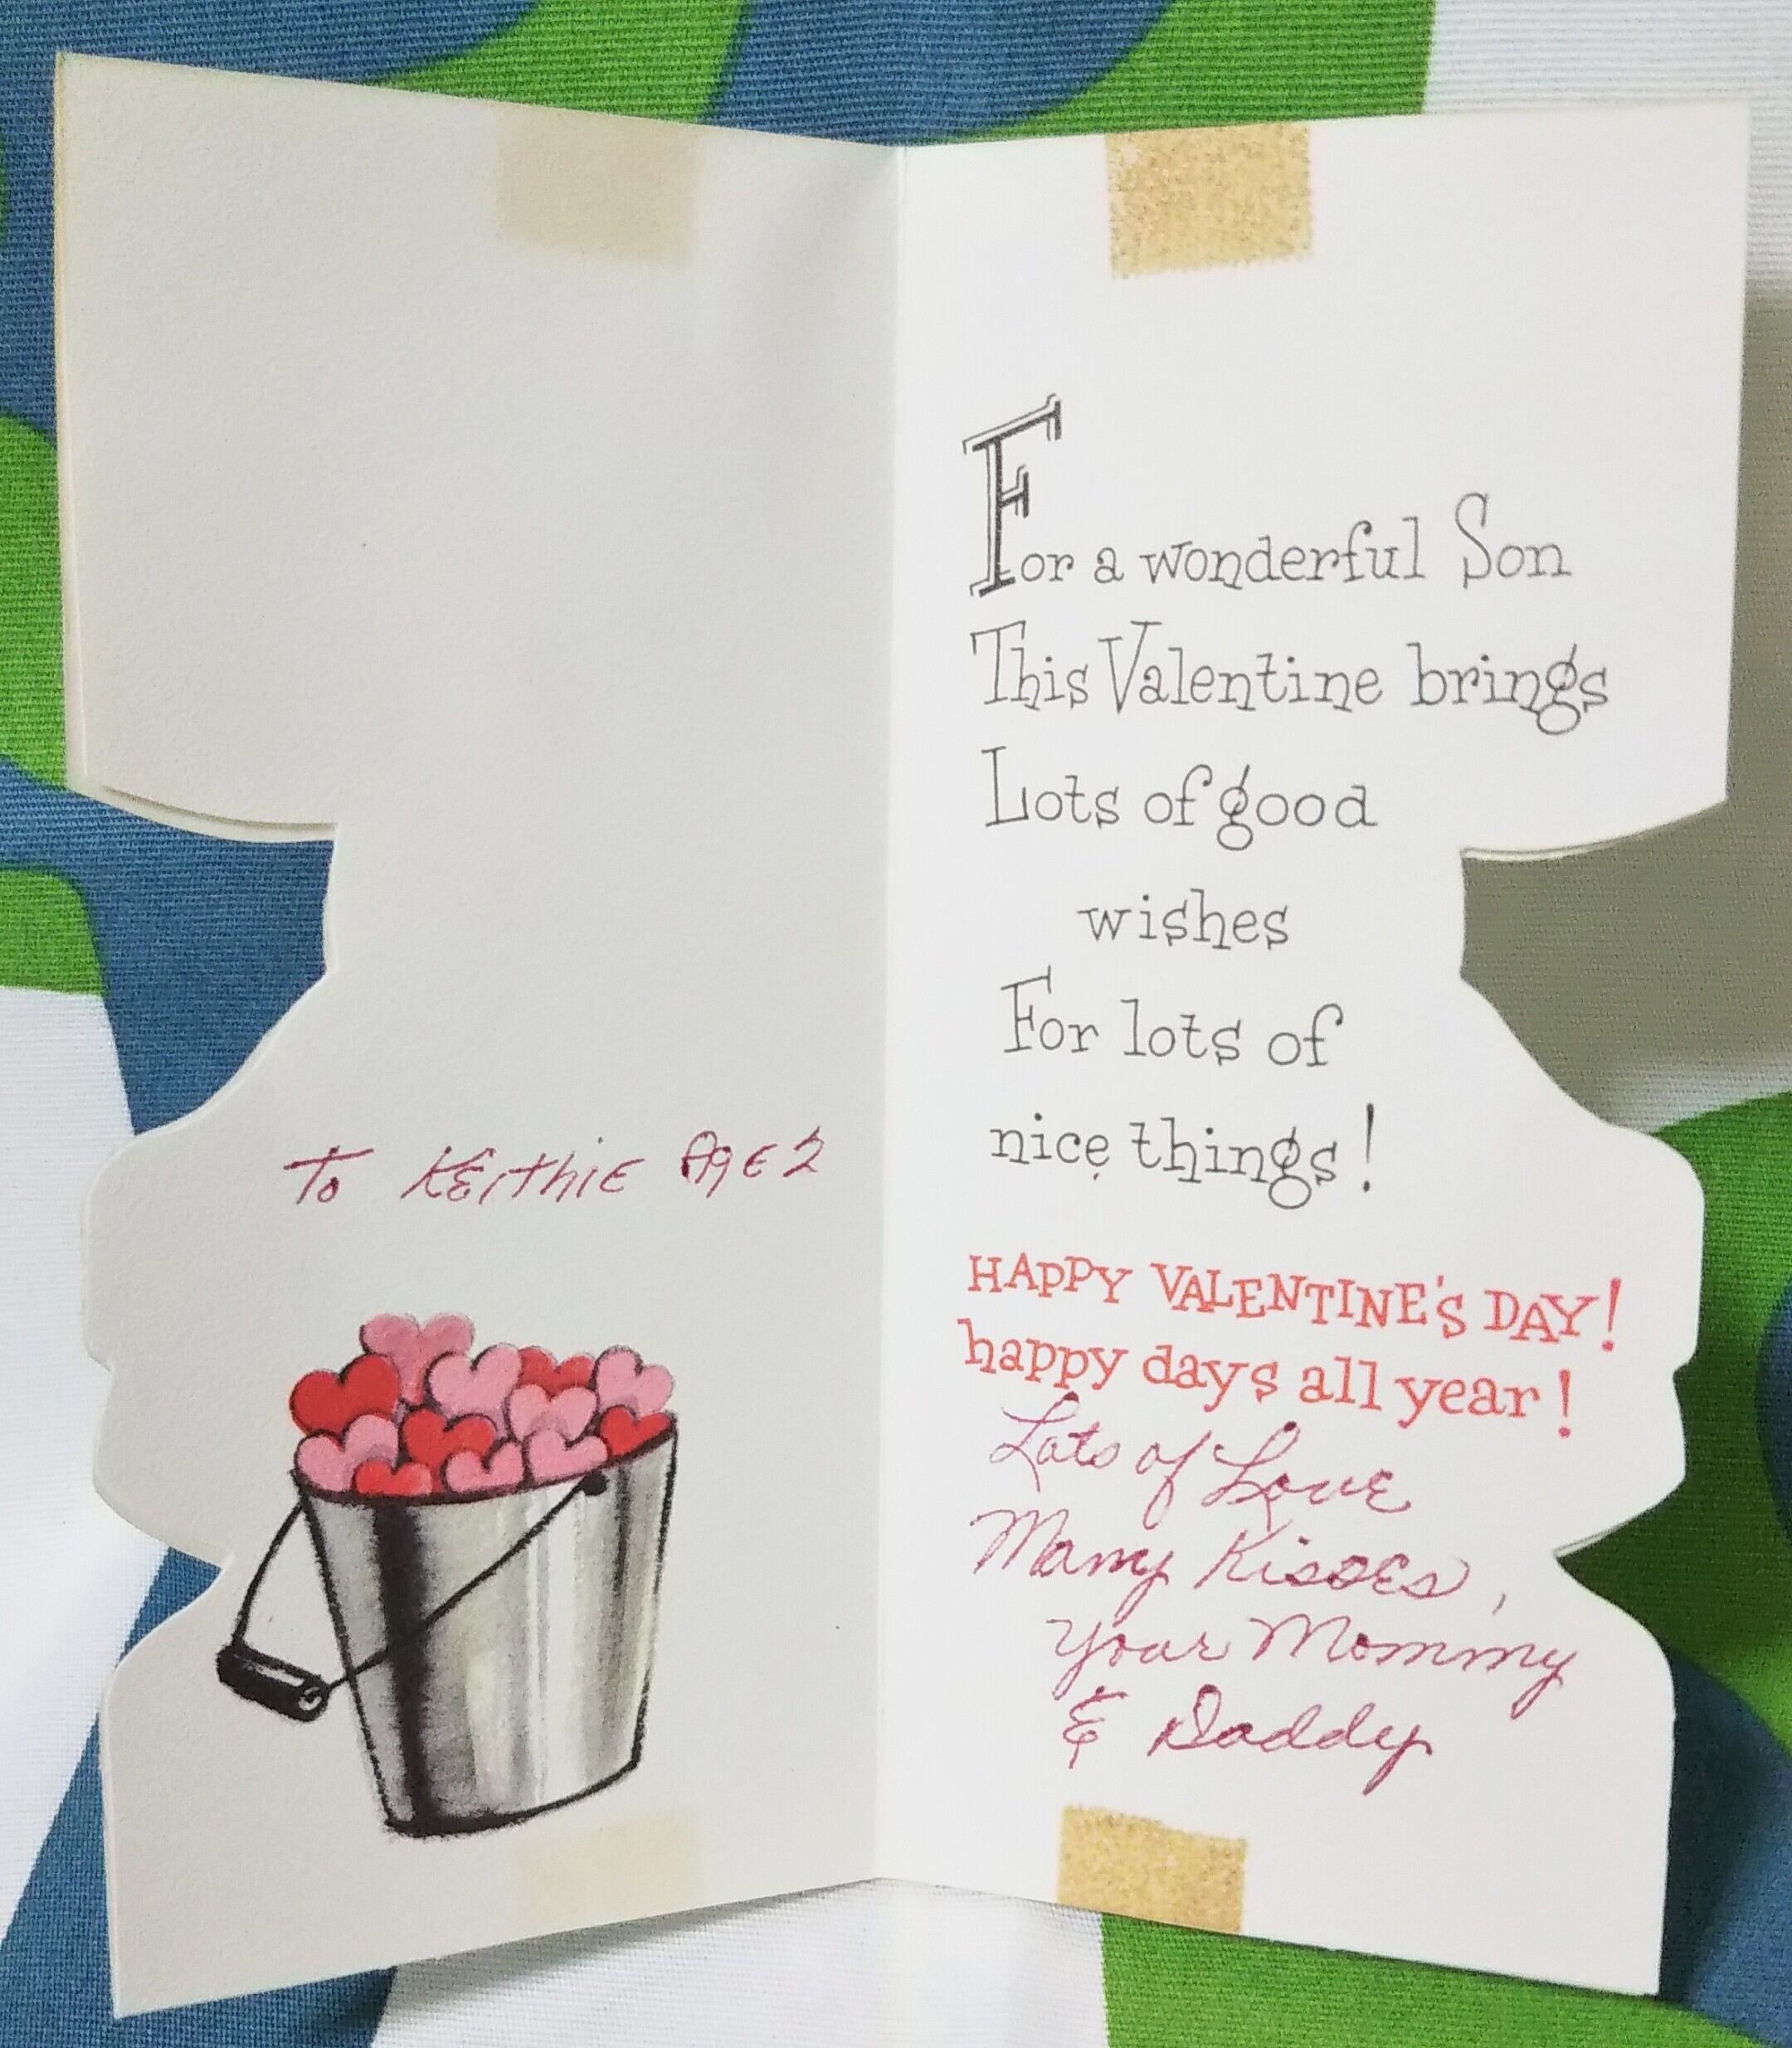 To Keithie Age 2
For a wonderful Son
This Valentine brings
Lots of good
wishes
For lots of
nice things!
HAPPY VALENTINE'S DAY!
happy days all year!
Lots of Love
Many Kisses,
your Mommy
& Daddy